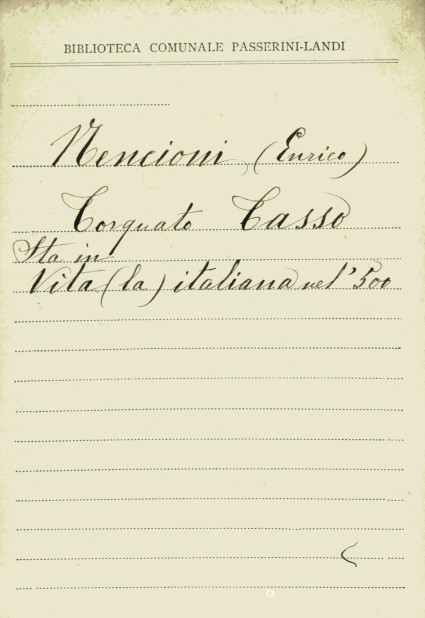 BIBLIOTECA COMUNALE PASSERINI-LANDI
Nencioni (Enrico)
Torquato Tasso
Sta in
Vita (la) italiana nel '500